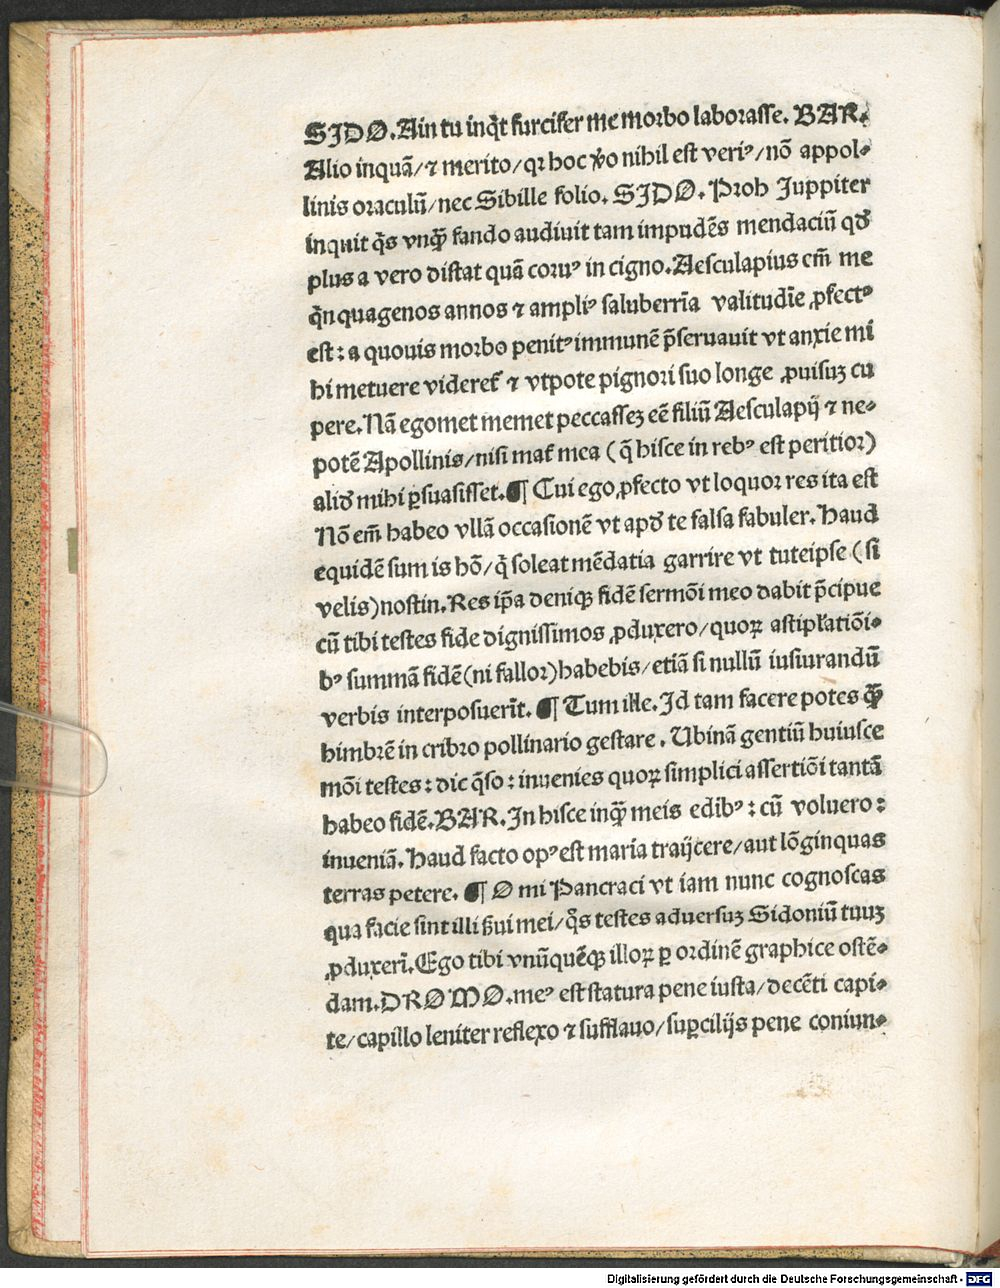 SIDO. Ain tu inq̄t furcifer me morbo laborasse. BAR.
Alio inquā/⁊ merito/qꝛ hoc v̄o nihil est veriꝰ/nō appol⸗
linis oraculū/nec Sibille folio. SIDO. Proh Juppiter
inquit q̄s vnq̄ꝫ fando audiuit tam impudēs mendaciū qd̄
plus a vero distat quā coruꝰ in cigno. Aesculapius em̄ me
q̄nquagenos annos ⁊ ampliꝰ saluberrīa valitudīe ꝓfectꝰ
est: a quouis morbo penitꝰ immunē p̄seruauit vt anxie mi
hi metuere videret᷑ ⁊ vtpote pignori suo longe ꝓuisuꝫ cu
pere. Nā egomet memet peccasseꝫ eē filiū Aesculapij ⁊ ne⸗
potē Apollinis/nisi mat᷑ mea (q̄ hisce in rebꝰ est peritior)
alid̄ mihi ꝑsuasisset. ¶ Cui ego ꝓfecto vt loquor res ita est
Nō em̄ habeo vllā occasionē vt apd̄ te falsa fabuler. Haud
equidē sum is hō/q̇ soleat mēdatia garrire vt tuteipse (si
velis) nostin. Res ip̄a deniqꝫ fidē sermōi meo dabit p̄cipue
cū tibi testes fide dignissimos ꝓduxero/quoꝝ astipl̄atiōi⸗
bꝰ summā fidē (ni fallor) habebis/etiā si nullū iusiurandū
verbis interposuerīt. ¶ Tum ille. Id tam facere potes q̄ꝫ
himbrē in cribro pollinario gestare. Ubinā gentiū huiusce
mōi testes: dic q̄so: inuenies quoꝝ simplici assertiōi tantā
habeo fidē. BAR. In hisce inq̄ꝫ meis edibꝰ: cū voluero:
inueniā. Haud facto opꝰ est maria traijcere/aut lōginquas
terras petere. ¶ O mi Pancraci vt iam nunc cognoscas
qua facie sint illi ẜui mei/q̄s testes aduersuꝫ Sidoniū tuuꝫ
ꝓduxerī. Ego tibi vnūquēqꝫ illoꝝ ꝑ ordinē graphice ostē⸗
dam. DROMO. meꝰ est statura pene iusta/decēti capi⸗
te/capillo leniter reflexo ⁊ sufflauo/suꝑcilijs pene coniun⸗
Digitalisierung gefördert durch die Deutsche Forschungsgemeinschaft - DFG